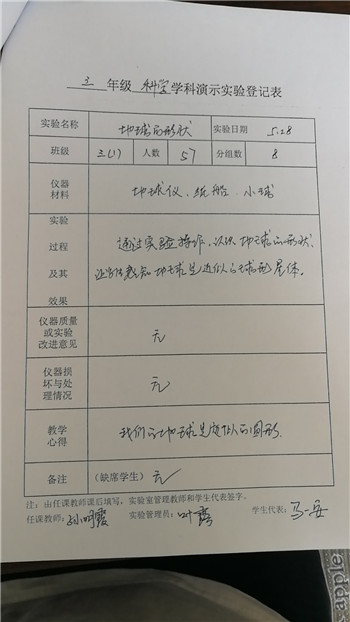 三 年级 科学 学科演示实验登记表
实验名称 地球的形状 实验日期 5.28
班级 三(1) 人数 57 分组数 8
仪器
材料 地球仪、纸船、小球
实验
过程 通过实验操作,认识地球的形状,
及其 地球是近似的球形星体。
效果
仪器质量
或实验
改进意见 无
仪器损
坏与处
理情况 无
教学
心得 我们的地球是 的圆形.
备注 (缺席学生) 无
注:由任课教师课后填写,实验室管理教师和学生代表签字。
任课教师: 霞 实验管理员:叶 露 学生代表:马一安
apple